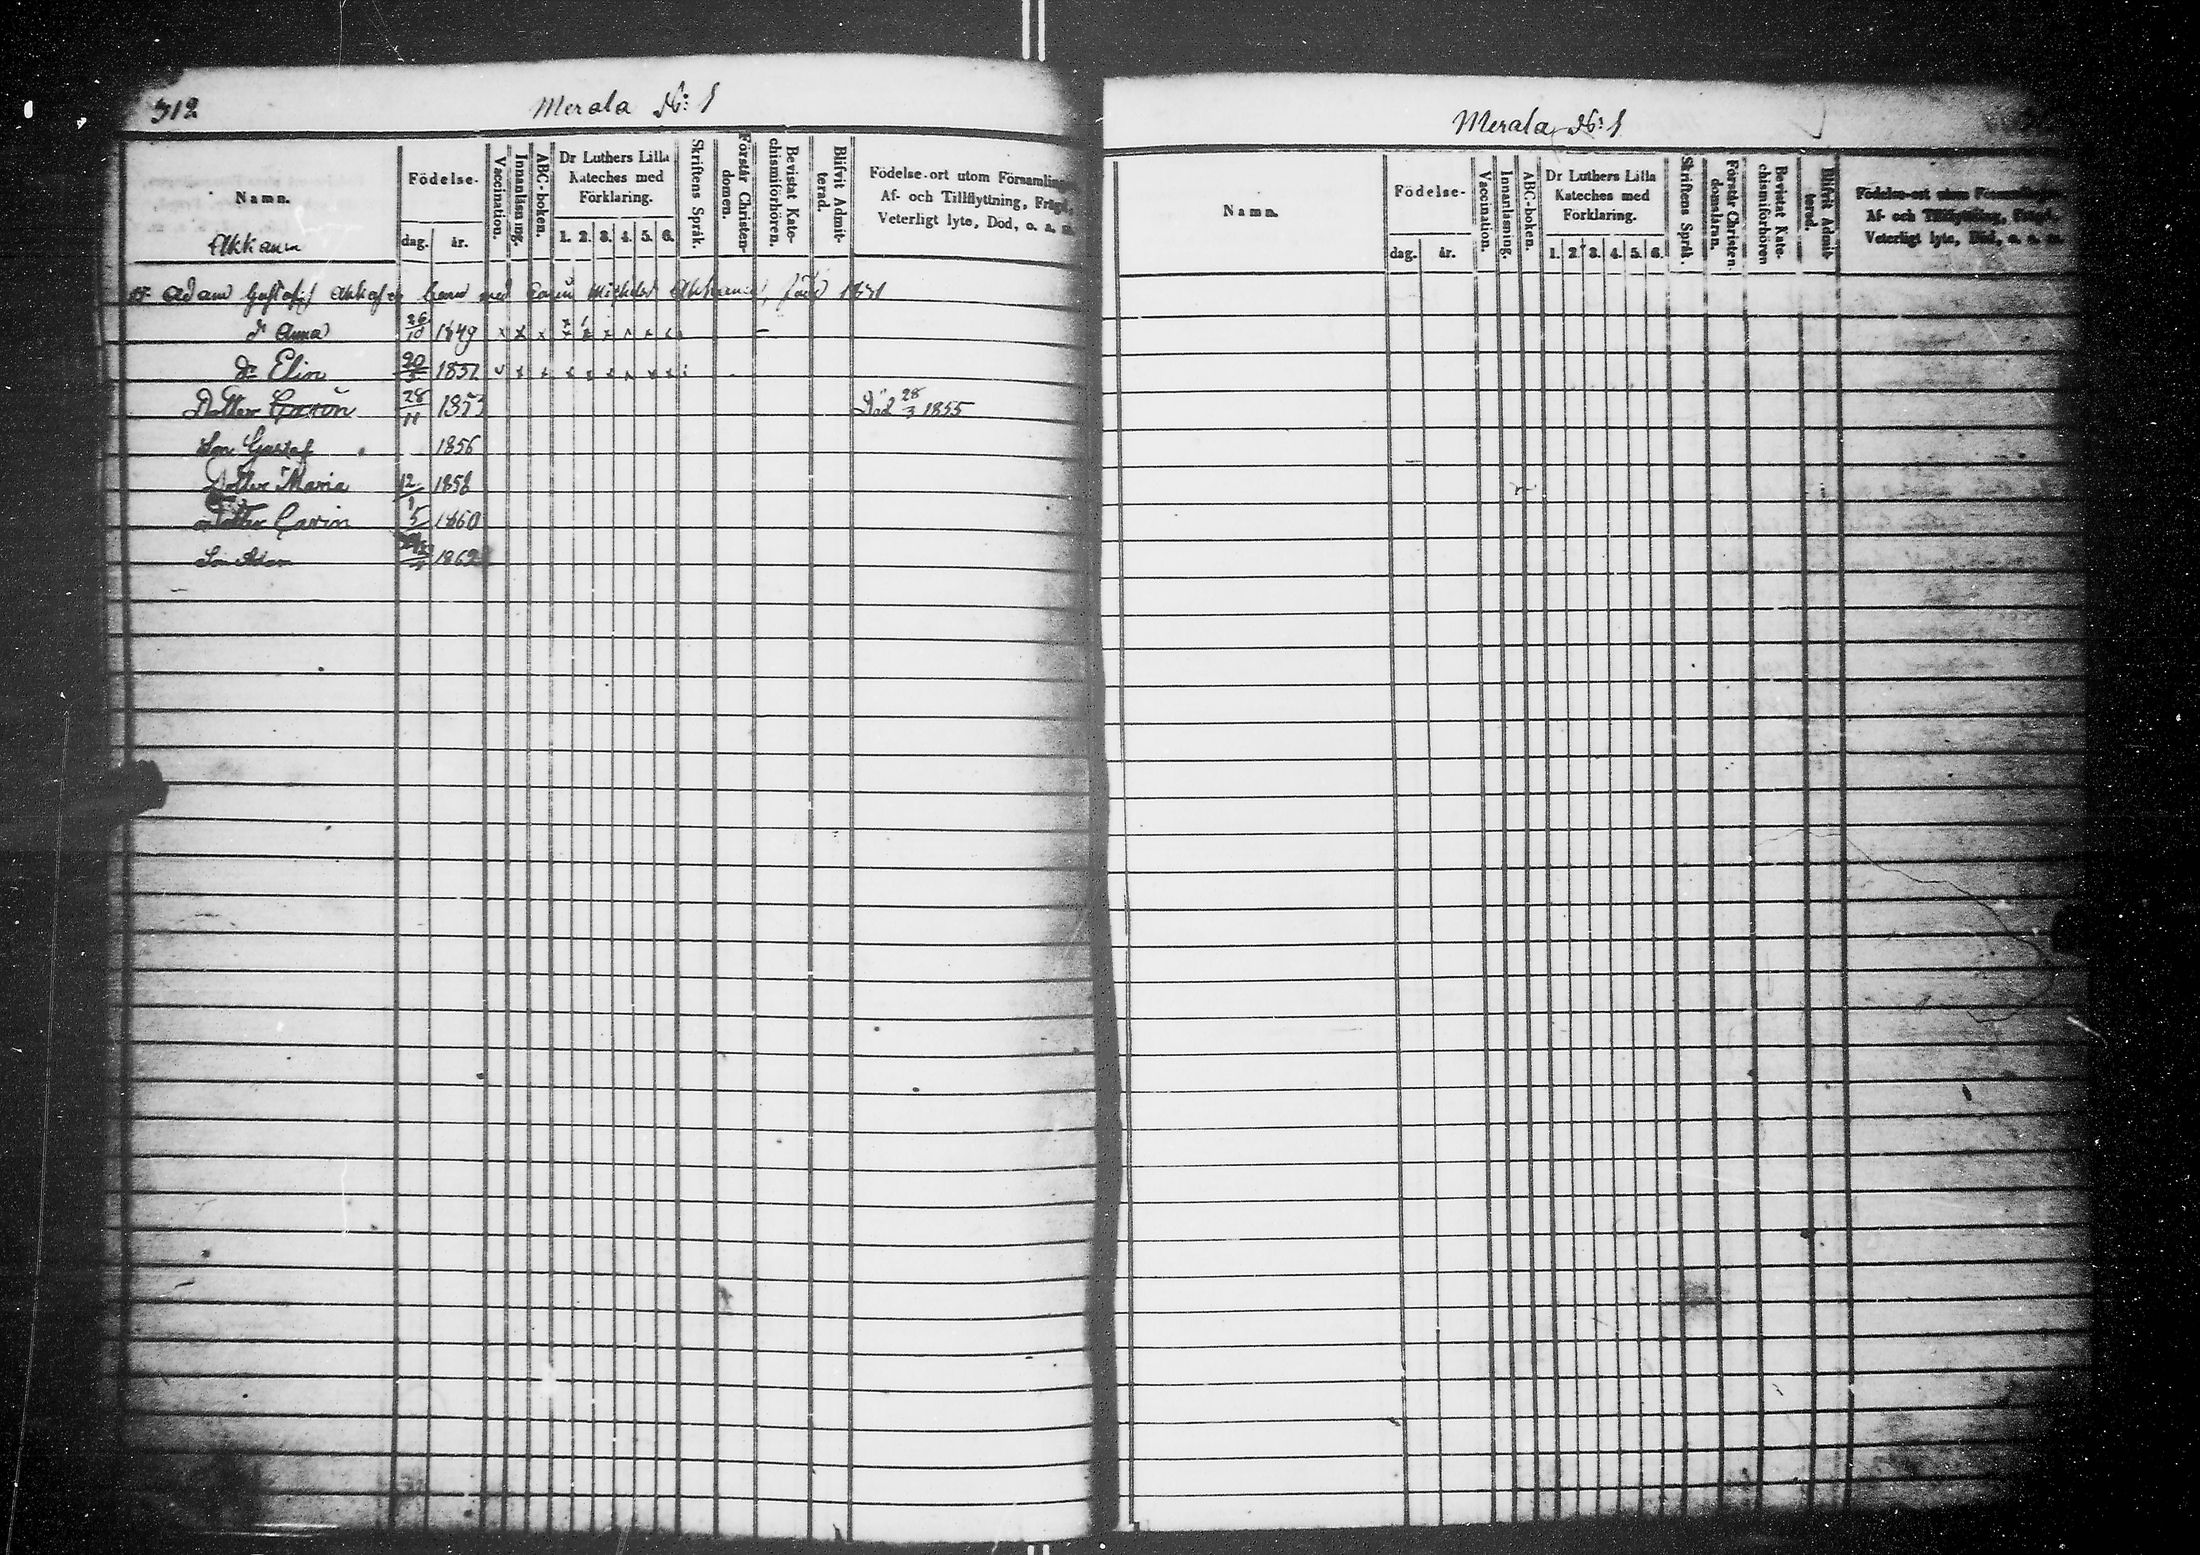 312
Merola No: 1
Namn.
Akkann
Födelse-
dag. år.
Vaccination.
Innanläsning.
ABC-boken.
Dr Luthers Lilla
Kateches med
Förklaring.
1. 2. 3. 4. 5. 6.
Skriftens Språk.
Förstår Christen-
domen.
Bevistat Kate-
chismiförhören.
Blifvit Admit-
terad.
Födelse-ort utom Församlingen
Af- och Tillflyttning, Frägd,
Veterligt lyte, Död, o. a. m.
Adam barn med född 1831
dr Anna 26/10 1849 x x x x x x x x x
dr Elin 1852 x x x x x x x x
Dotter Carin 28/11 1853 Död 28/3 1855
Son Gustaf 1856
Dotter Maria 12 1858
Dotter Carin 5 1860
Son Adam 1862
Merala No: 1
Namn.
Födelse-
dag. år.
Vaccination.
Innanläsning.
ABC-boken.
Dr Luthers Lilla
Kateches med
Förklaring.
1. 2. 3. 4. 5. 6.
Skriftens Språk.
Förstår Christen-
domsläran.
Bevistat Kate-
chismiförhören
Blifvit Admit-
terad.
Födelse-ort utom Församlingen
Af- och Tillflyttning, Frägd,
Veterligt lyte, Död, o. a. m.